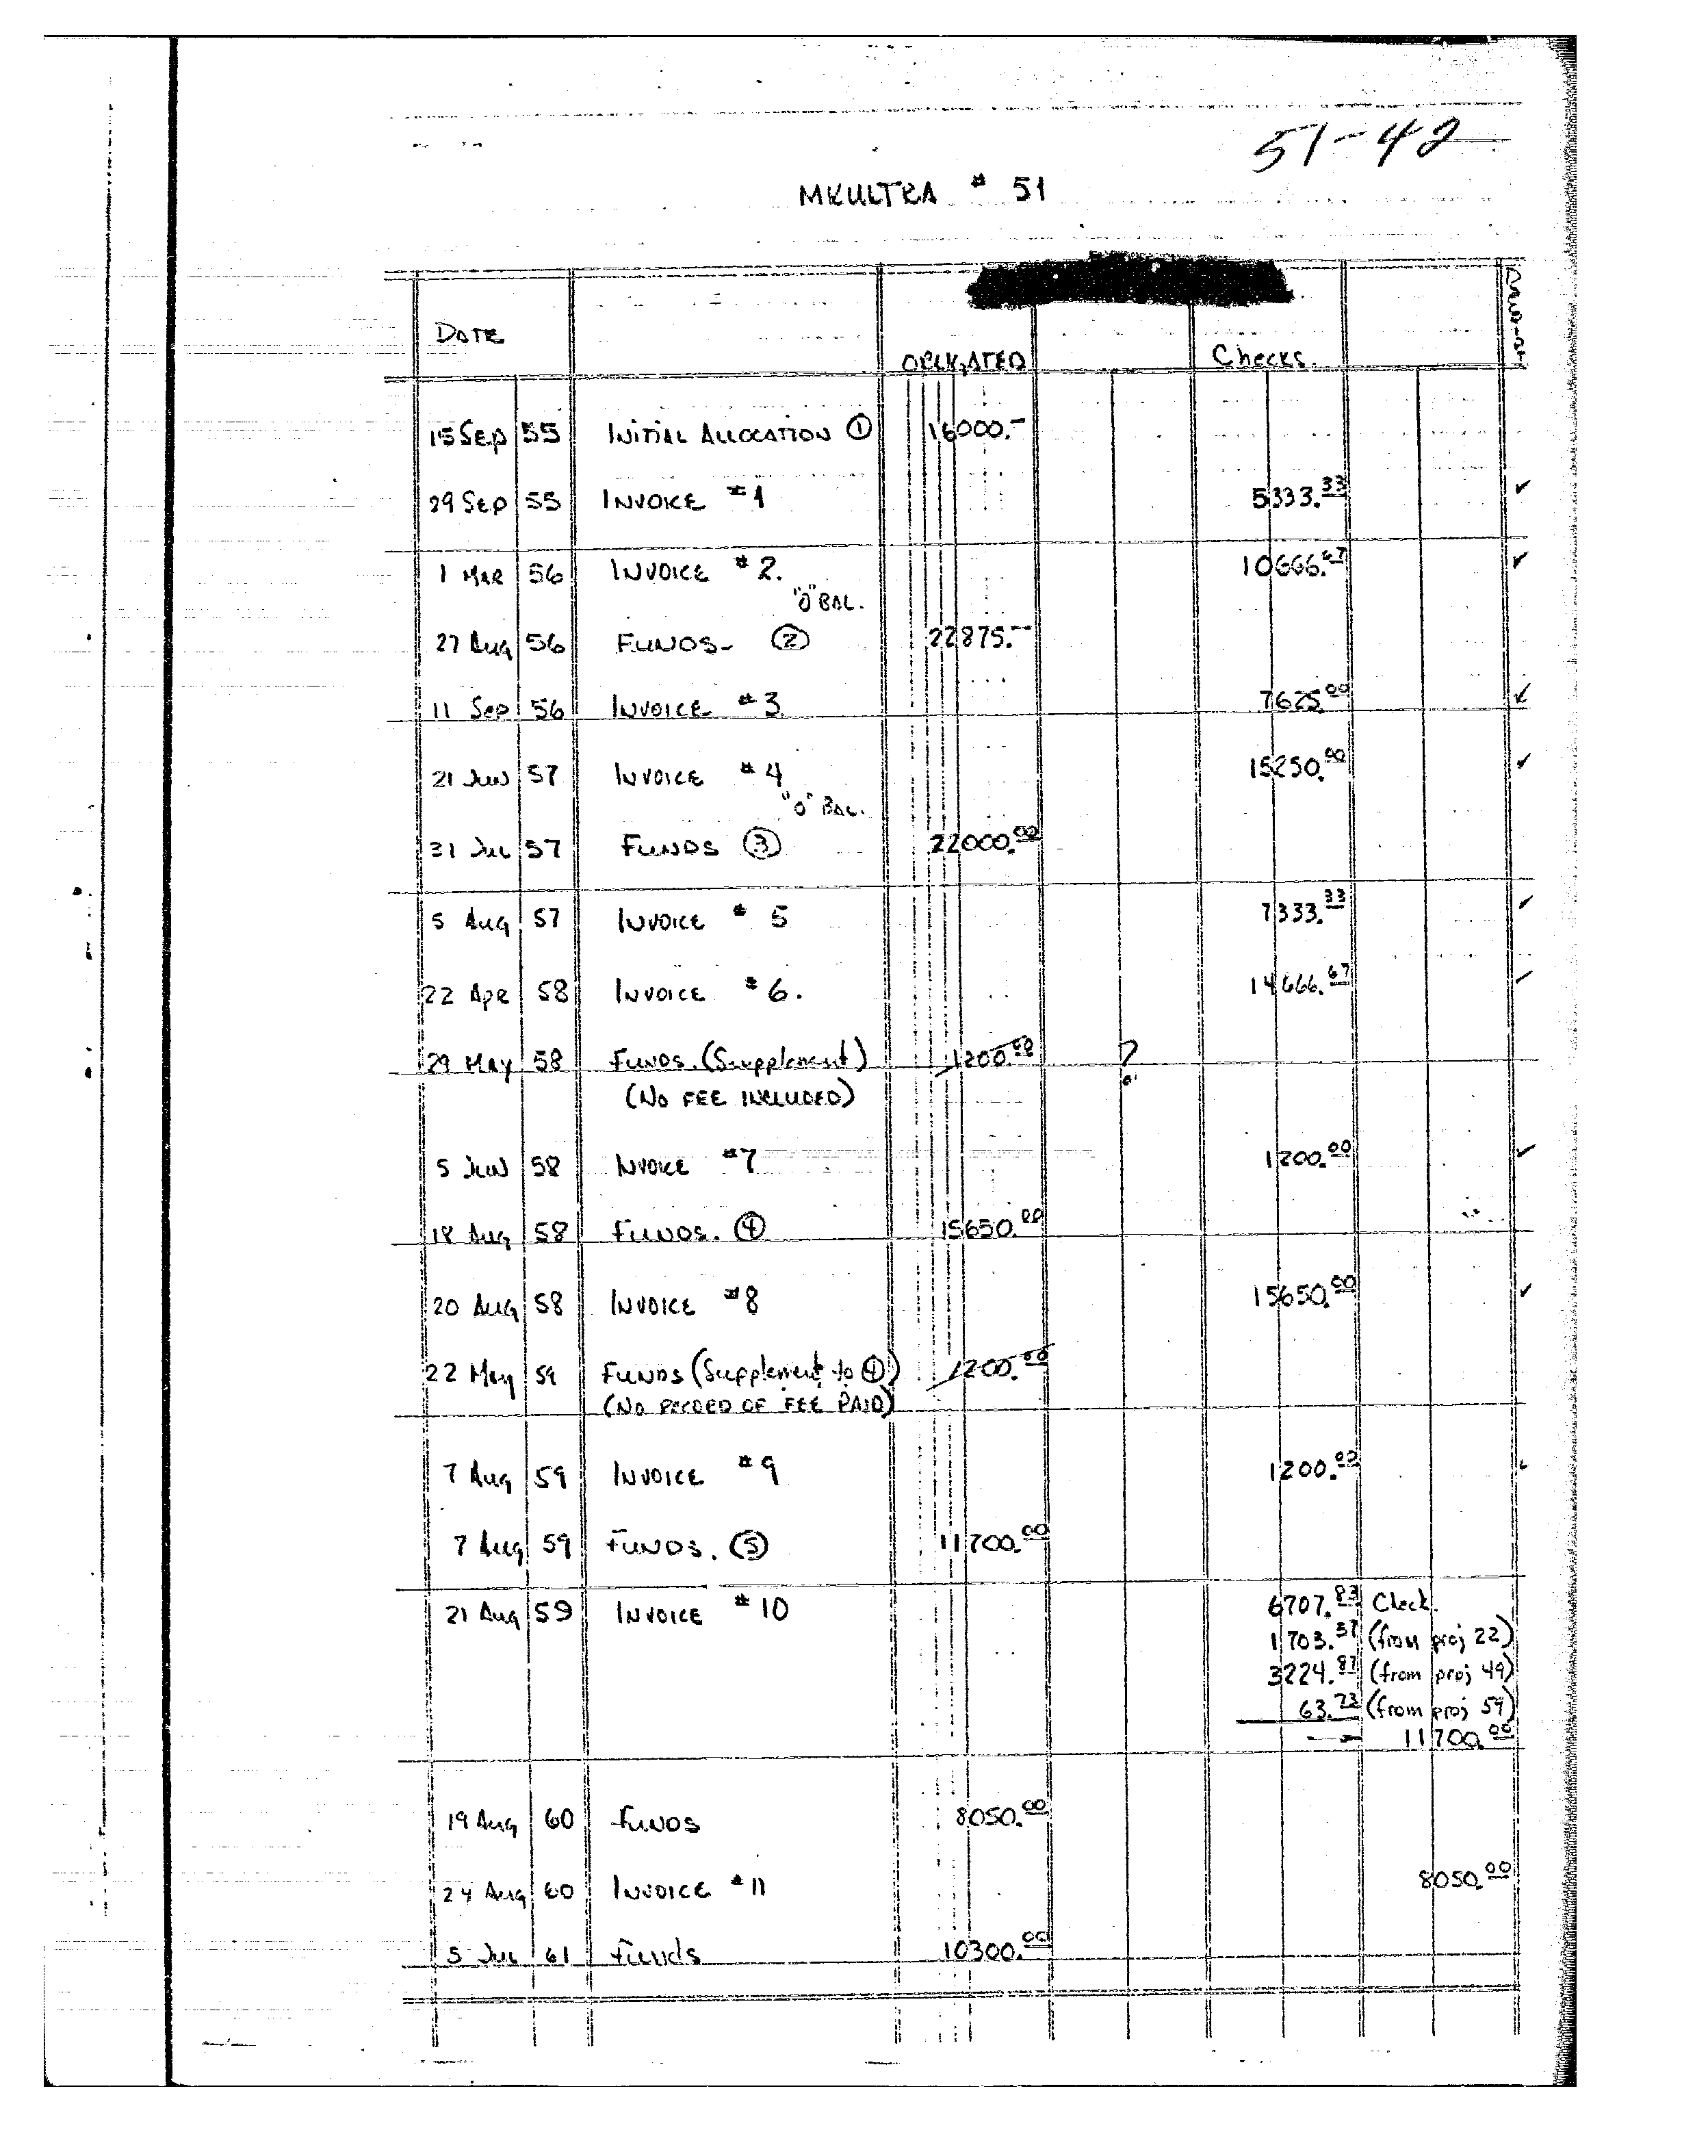 51-42
MKULTRA # 51
DATE OBLIGATED Checks.
15 Sep 55 INITIAL ALLOCATION ① 16000.–
29 Sep 55 INVOICE #1 5333.33 ✓
1 MAR 56 INVOICE #2. 10666.67 ✓
"0" BAL.
27 Aug 56 FUNDS- ② 22875.–
11 Sep 56 INVOICE #3 7625.00 ✓
21 JUN 57 INVOICE #4 15250.00 ✓
"0" BAL.
31 JUL 57 FUNDS ③ 22000.00
5 Aug 57 INVOICE # 5 7333.33 ✓
22 Apr 58 INVOICE #6. 14666.67 ✓
29 May 58 FUNDS. (Supplement) 1200.00 ?
(NO FEE INCLUDED)
5 JUN 58 INVOICE #7 1200.00 ✓
18 Aug 58 FUNDS. ④ 15650.00
20 Aug 58 INVOICE #8 15650.00 ✓
22 May 59 FUNDS (Supplement to ④) 1200.00
(NO RECORD OF FEE PAID)
7 Aug 59 INVOICE #9 1200.00
7 Aug 59 FUNDS. ⑤ 11700.00
21 Aug 59 INVOICE #10 6707.83 Check.
1703.57 (from proj 22)
3224.87 (from proj 49)
63.73 (from proj 59)
11700.00
19 Aug 60 FUNDS 8050.00
24 Aug 60 INVOICE #11 8050.00
5 Jul 61 Funds 10300.00